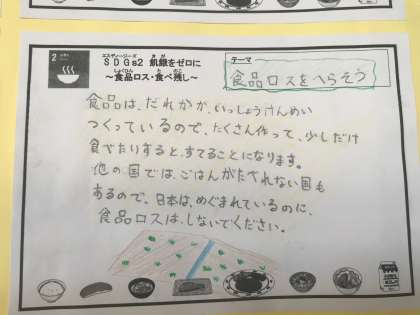 2
エスディージーズ き が
SDGs2 飢餓をゼロに
しょくひん た のこ
～食品ロス・食べ残し～
テーマ
食品ロスをへらそう
食品は、だれかが、いっしょうけんめい
つくっているので、たくさん作って、少しだけ
食べたりすると、すてることになります。
他の国では、ごはんがたべれない国も
あるので、日本は、めぐまれているのに、
食品ロスは、しないでください。